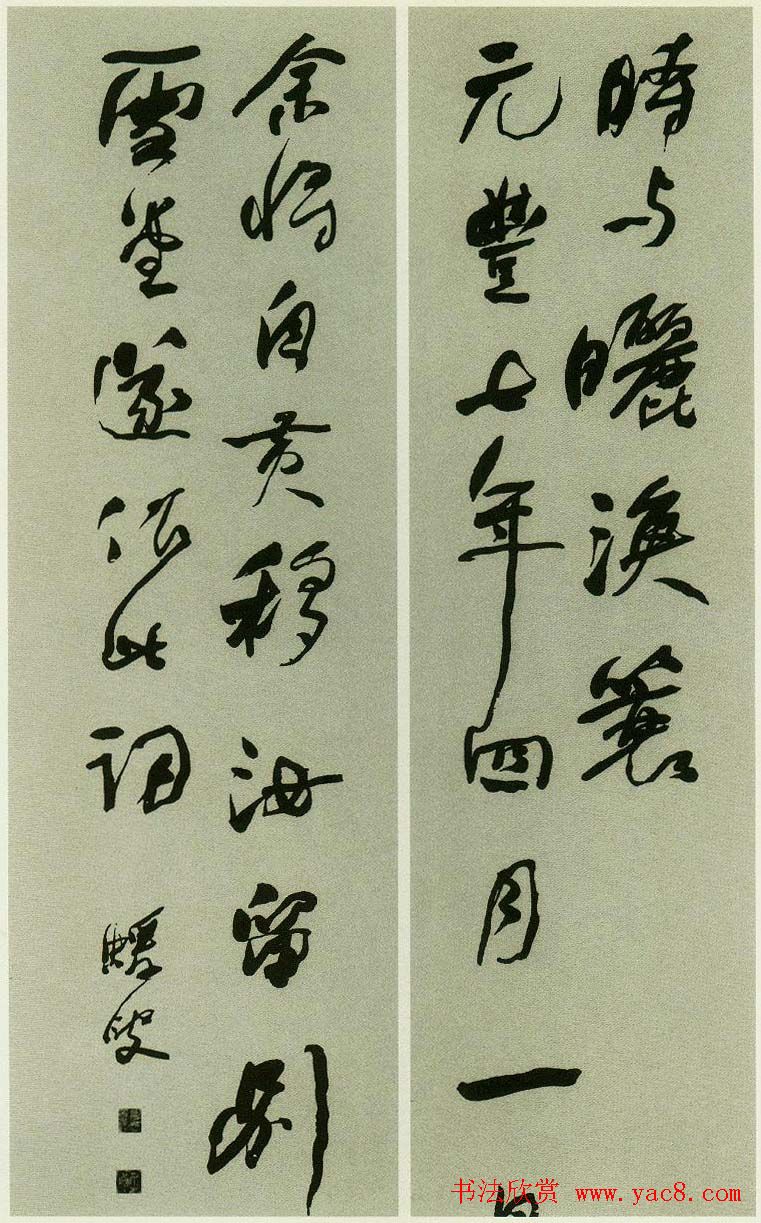 時与曬漁蓑
元豐七年四月一日
余將自黄移汝留別
雪堂遂作此詞
蝯叟
书法欣赏 www.yac8.com